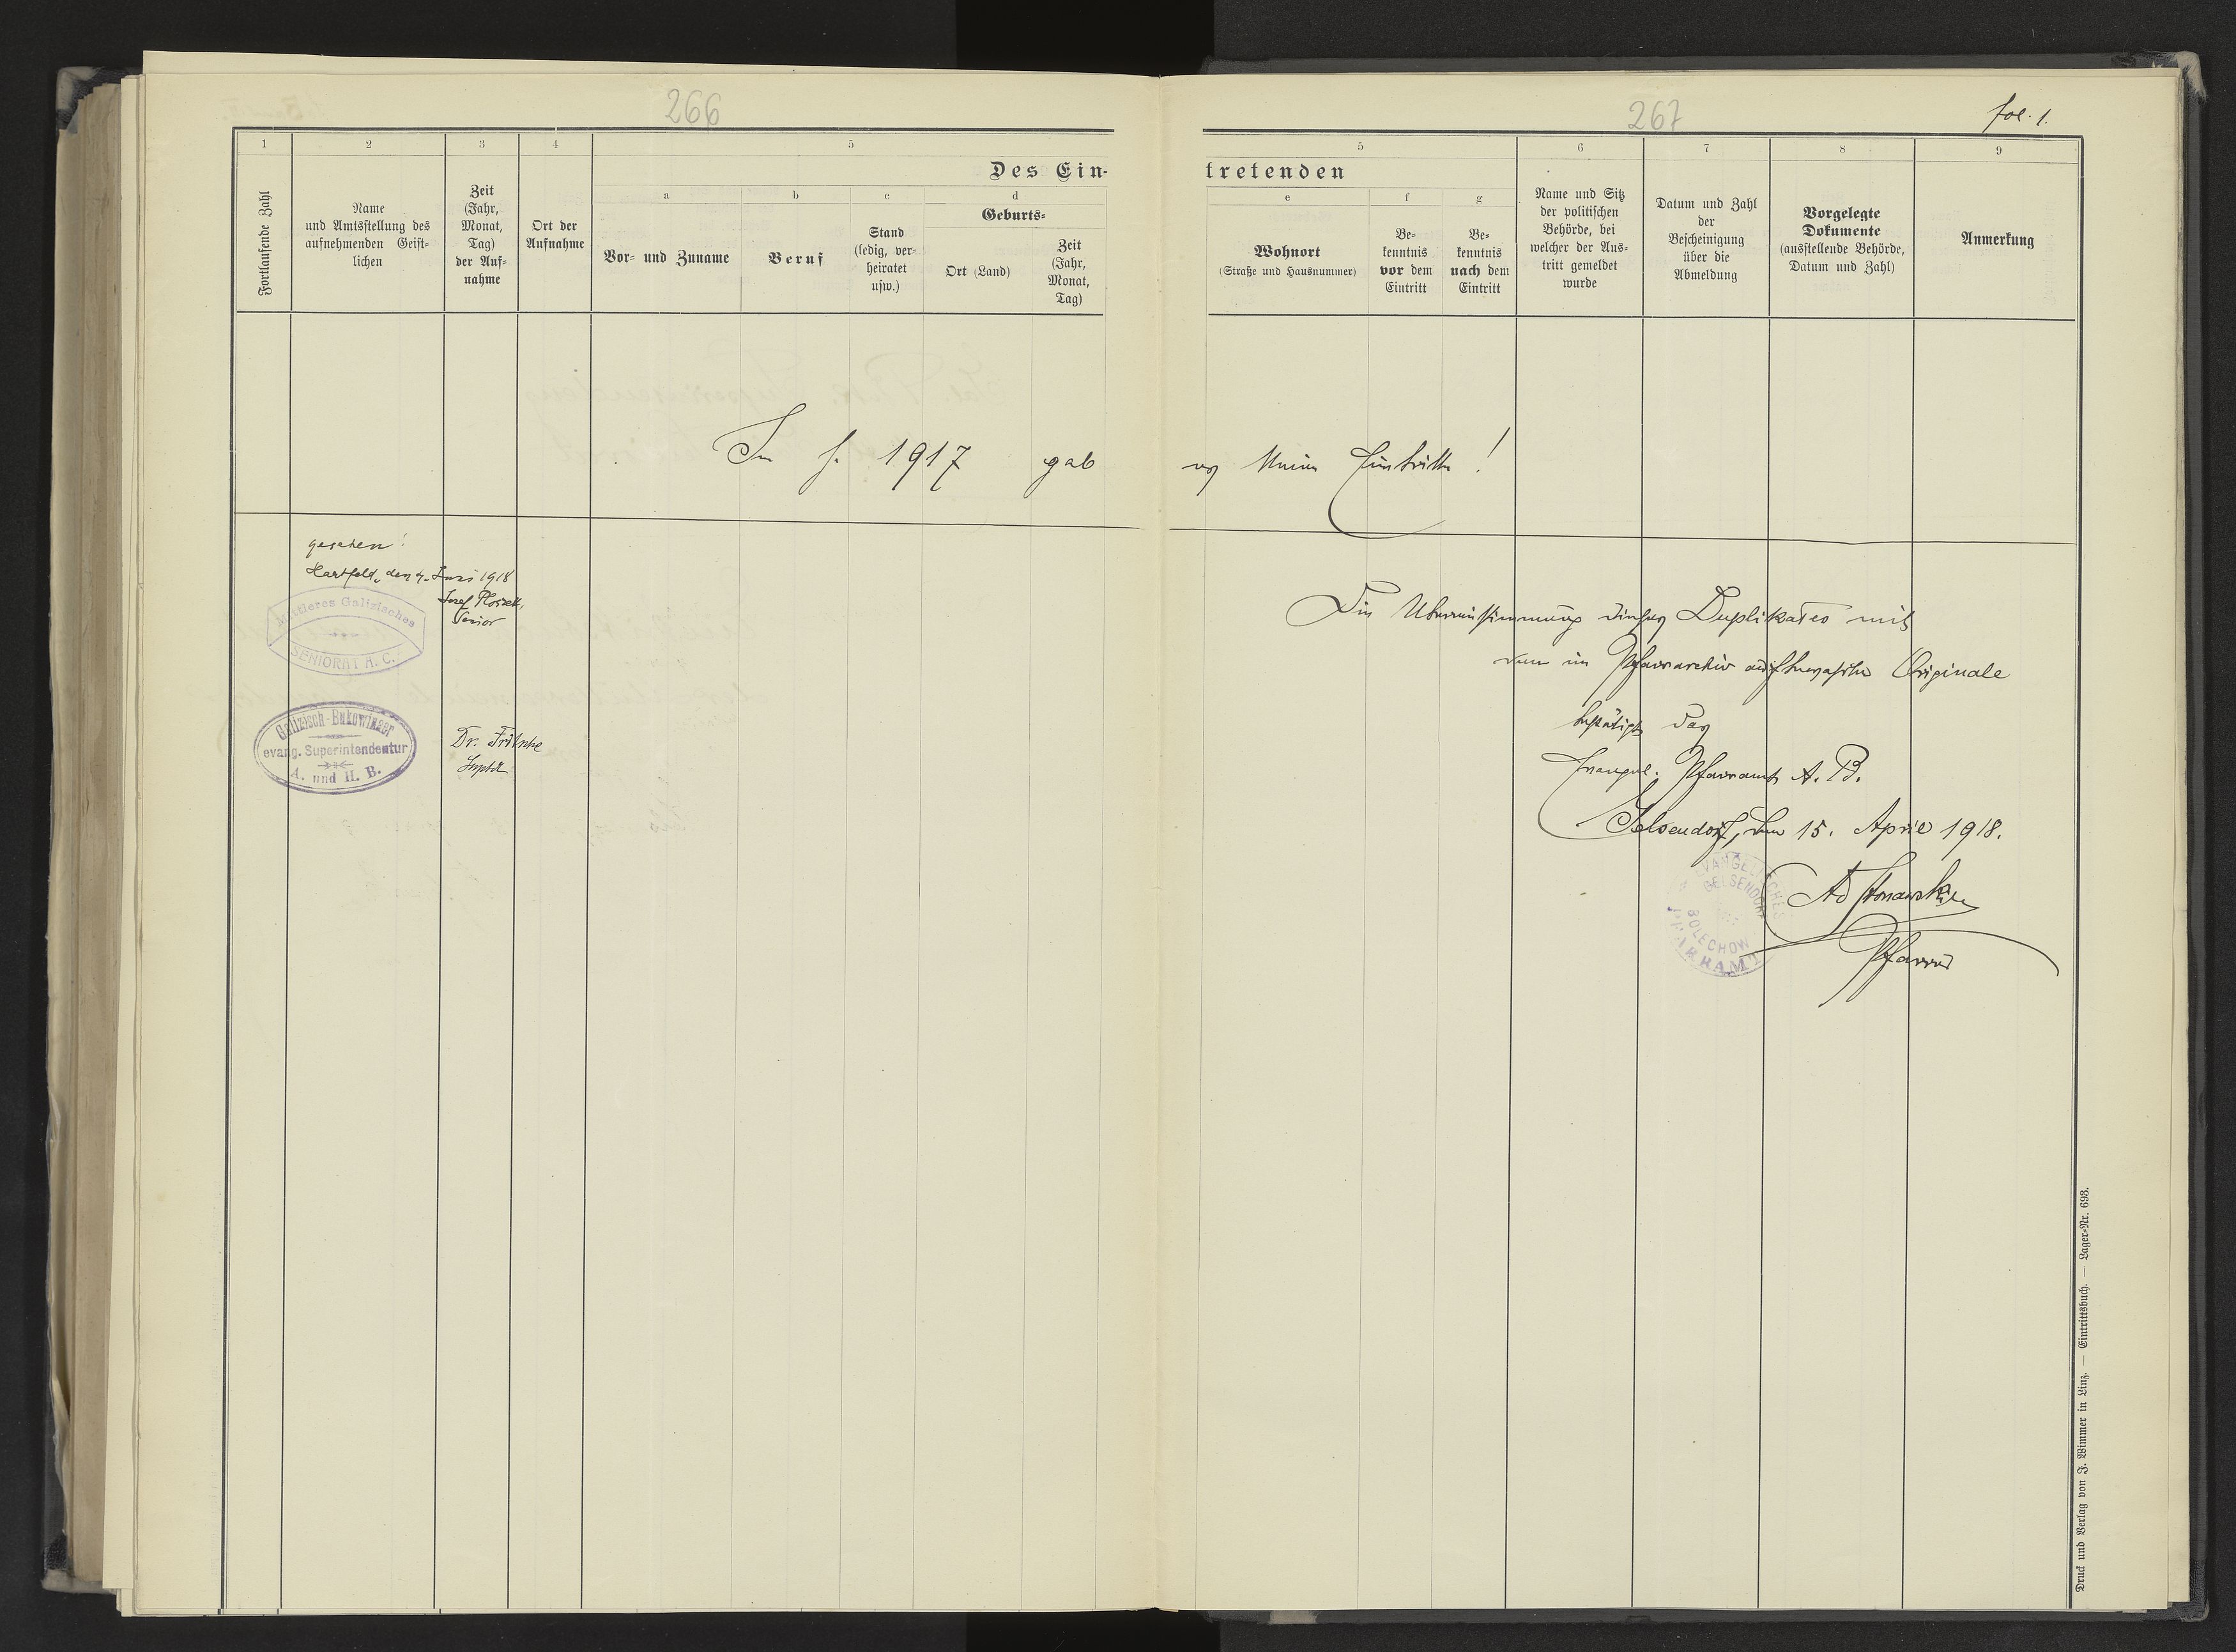 266
1
2
3
4
5
Des Ein-
Fortlaufende Zahl
Name
und Amtsstellung des
aufnehmenden Geist-
lichen
Zeit
(Jahr,
Monat,
Tag)
der Auf-
nahme
Ort der
Aufnahme
a
Vor- und Zuname
b
Beruf
c
Stand
(ledig, ver-
heiratet
usw.)
d
Geburts-
Ort (Land)
Zeit
(Jahr,
Monat,
Tag)
Im J. 1917 gab
gesehen!
Hartfeld, den 4. Juni 1918
Josef
Senior
Mittleres Galizisches
SENIORAT A. C.
Galizisch-Bukowinaer
evang. Superintendentur
A. und H. B.
Dr. Fritsche
Suptdt
267
fol. 1.
5
6
7
8
9
tretenden
e
Wohnort
(Straße und Hausnummer)
f
Be-
kenntnis
vor dem
Eintritt
g
Be-
kenntnis
nach dem
Eintritt
Name und Sitz
der politischen
Behörde, bei
welcher der Aus-
tritt gemeldet
wurde
Datum und Zahl
der
Bescheinigung
über die
Abmeldung
Vorgelegte
Dokumente
(ausstellende Behörde,
Datum und Zahl)
Anmerkung
es keine Eintritte!
Die Übereinstimmung dieses Duplikates mit
dem im Pfarrarchiv aufbewahrten Originale
bestätigt das
Evangel. Pfarramt A. B.
Gelsendorf, den 15. April 1918.
EVANGELISCHES
GELSENDORF
BOLECHOW
PFARRAMT
Pfarrer
Druck und Verlag von J. Wimmer in Linz. — Eintrittsbuch. — Lager-Nr. 693.